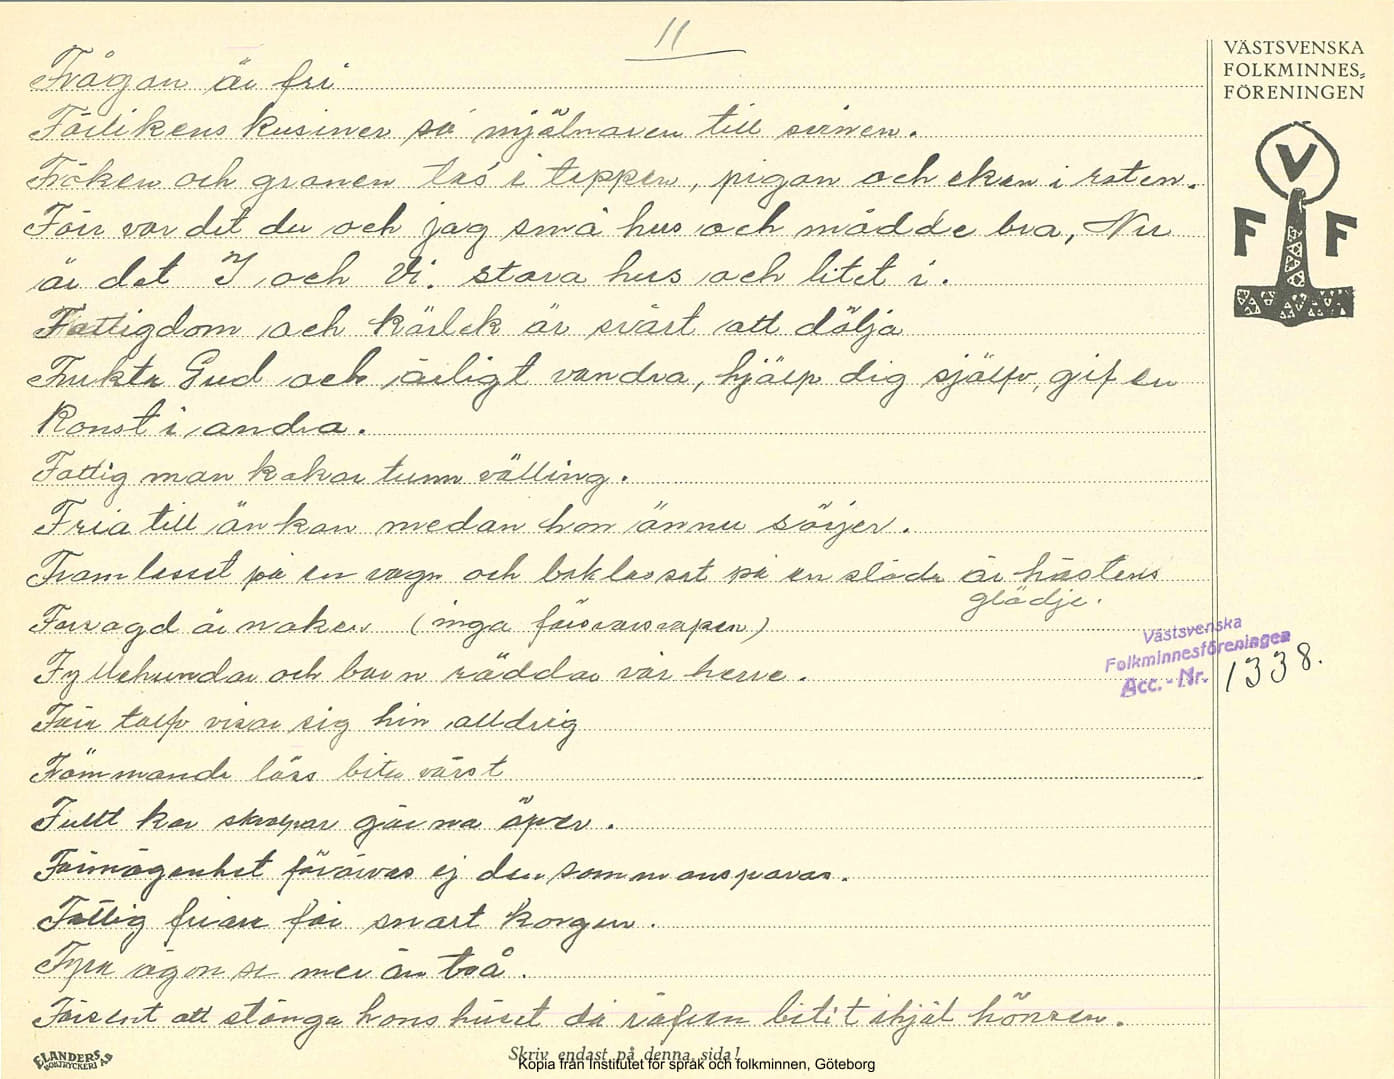 11
VÄSTSVENSKA
FOLKMINNES-
FÖRENINGEN
V
F F
Frågan är fri
Förlikens kusiner sa mjölnaren till svinen.
Fröken och granen tas i toppen, pigan och eken i roten.
Förr var det du och jag små hus och mådde bra, Nu
är det I och Vi. stora hus och litet i.
Fattigdom och kärlek är svårt att dölja
Frukta Gud och ärligt vandra, hjälp dig själfv, gif en
Konst i andra.
Fattig man kokar tunn välling.
Fria till änkan medan hon ännu sörjer.
Framlasset på en vagn och baklasset på en släde är hästens
glädje.
Försagd är naken (inga försvarsvapen)
Fyllehundar och barn räddar vår herre.
För tolfv visar sig hin alldrig
Främmande löss bita värst
Fullt kar skvalpar gärna öfver.
Förmögenhet förvärvas ej den som man sparas.
Fattig friare får snart korgen.
Fyra ögon se mer än två.
Försent att stänga hönshuset då räfven bitit ihjäl hönsen.
Västsvenska
Folkminnesföreningen
Acc. - Nr. 1338.
ELANDERS
BOKTRYCKERI A.B
Skriv endast på denna sida!
Kopia från Institutet för språk och folkminnen, Göteborg